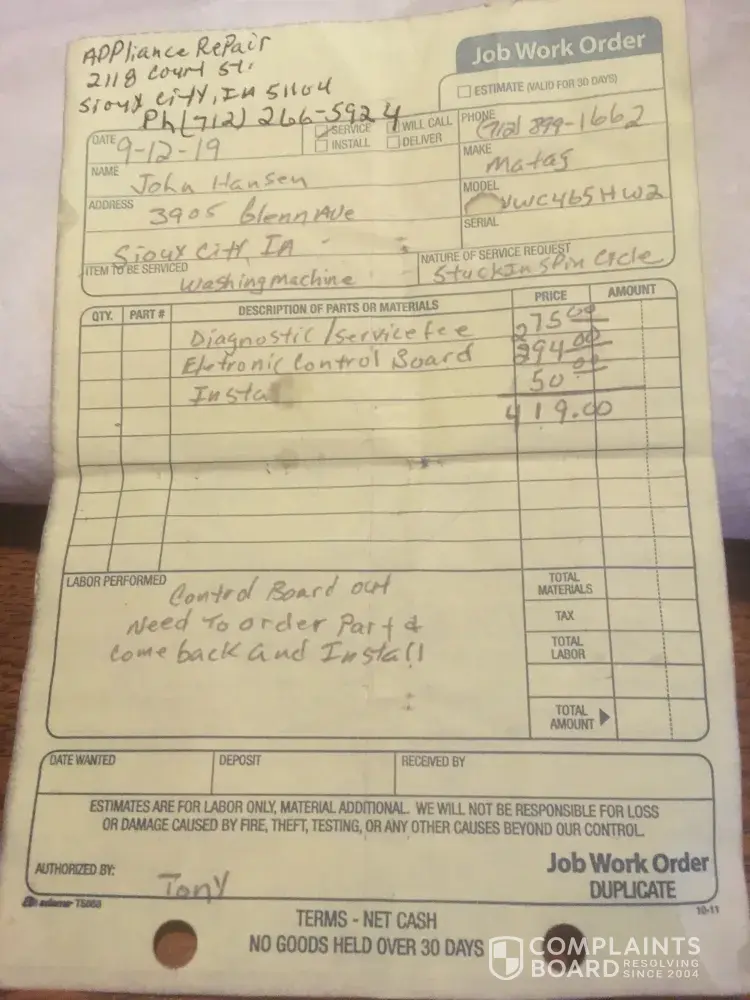 APPliance RePair
2118 Court St.
Sioux City, IA 51104
Ph (712) 266-5924
Job Work Order
ESTIMATE (VALID FOR 30 DAYS)
DATE 9-12-19
SERVICE WILL CALL
INSTALL DELIVER
PHONE (712) 899-1662
NAME John Hansen
MAKE Matag
ADDRESS 3905 Glenn Ave
MODEL VWC465HW2
Sioux City, IA
SERIAL
ITEM TO BE SERVICED Washing machine
NATURE OF SERVICE REQUEST Stuck In Spin Cicle
QTY. PART # DESCRIPTION OF PARTS OR MATERIALS PRICE AMOUNT
Diagnostic/service fee 75.00
Eletronic Control Board 294.00
Insta 50.00
419.00
LABOR PERFORMED Control Board out
Need To order Part &
come back and Install
TOTAL MATERIALS
TAX
TOTAL LABOR
TOTAL AMOUNT
DATE WANTED DEPOSIT RECEIVED BY
ESTIMATES ARE FOR LABOR ONLY, MATERIAL ADDITIONAL. WE WILL NOT BE RESPONSIBLE FOR LOSS
OR DAMAGE CAUSED BY FIRE, THEFT, TESTING, OR ANY OTHER CAUSES BEYOND OUR CONTROL.
AUTHORIZED BY: Tony
Job Work Order
DUPLICATE
adams T5868
10-11
TERMS - NET CASH
NO GOODS HELD OVER 30 DAYS
COMPLAINTS
BOARD RESOLVING SINCE 2004